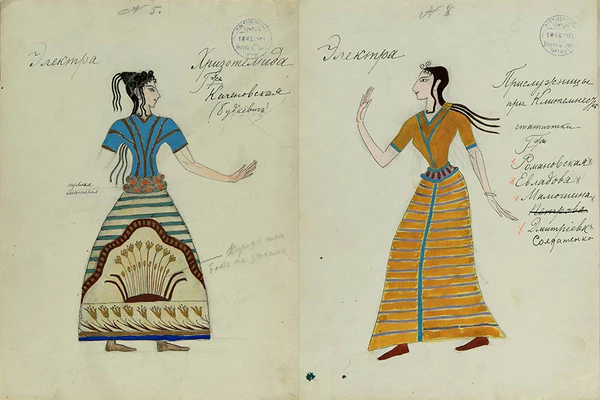 № 5.
Электра
Хризотемида
Г-жи
Каченовская
(Будкевичъ)
№ 8
Электра
Прислужницы
при Клитемнестрѣ
статистки
Г-жи
Романовская
Евладова
Малюшина
Петрова
Дмитріева
Солдатенко